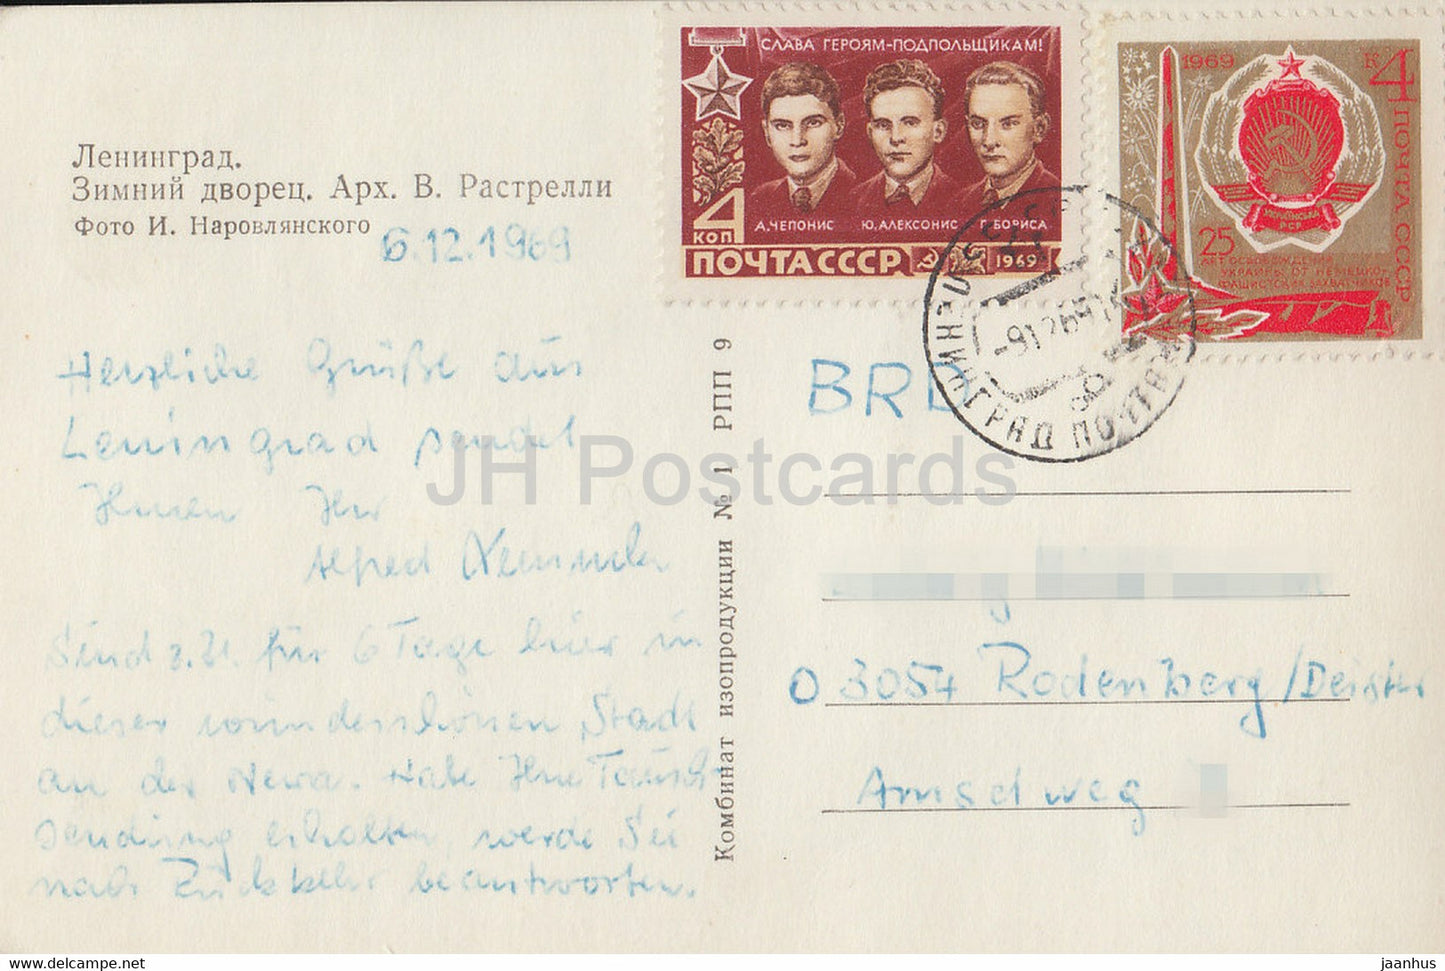 СЛАВА ГЕРОЯМ-ПОДПОЛЬЩИКАМ!
А.ЧЕПОНИС Ю.АЛЕКСОНИС Г.БОРИСА
4 КОП
ПОЧТА СССР 1969
1969
К 4 ПОЧТА СССР
УКРАЇНСЬКА РСР
25
ЛЕТ ОСВОБОЖДЕНИЯ
УКРАИНЫ ОТ НЕМЕЦКО-
ФАШИСТСКИХ ЗАХВАТЧИКОВ
Ленинград.
Зимний дворец. Арх. В. Растрелли
Фото И. Наровлянского
6.12.1969
Herzliche Grüße aus
Leningrad sendet
Ihnen Ihr
Alfred
Sind z. Zt. für 6 Tage hier in
dieser wunderschönen Stadt
an der Newa. Habe Ihre Tausch-
sendung erhalten, werde Sie
nach Rückkehr beantworten.
Комбинат изопродукции № 1 РПП 9
ЛЕНИНГРАД
BRD
JH Postcards
D 3054 Rodenberg/Deister
Amselweg
www.jaanhus-store.com
jaanhus